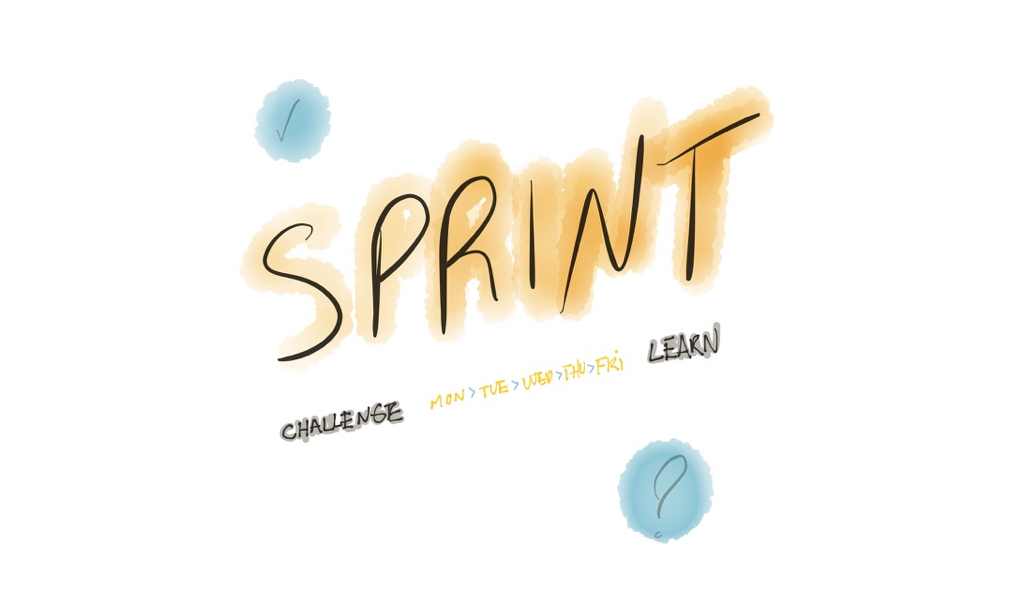 ✓
SPRINT
CHALLENGE MON > TUE > WED > THU > FRi LEARN
?